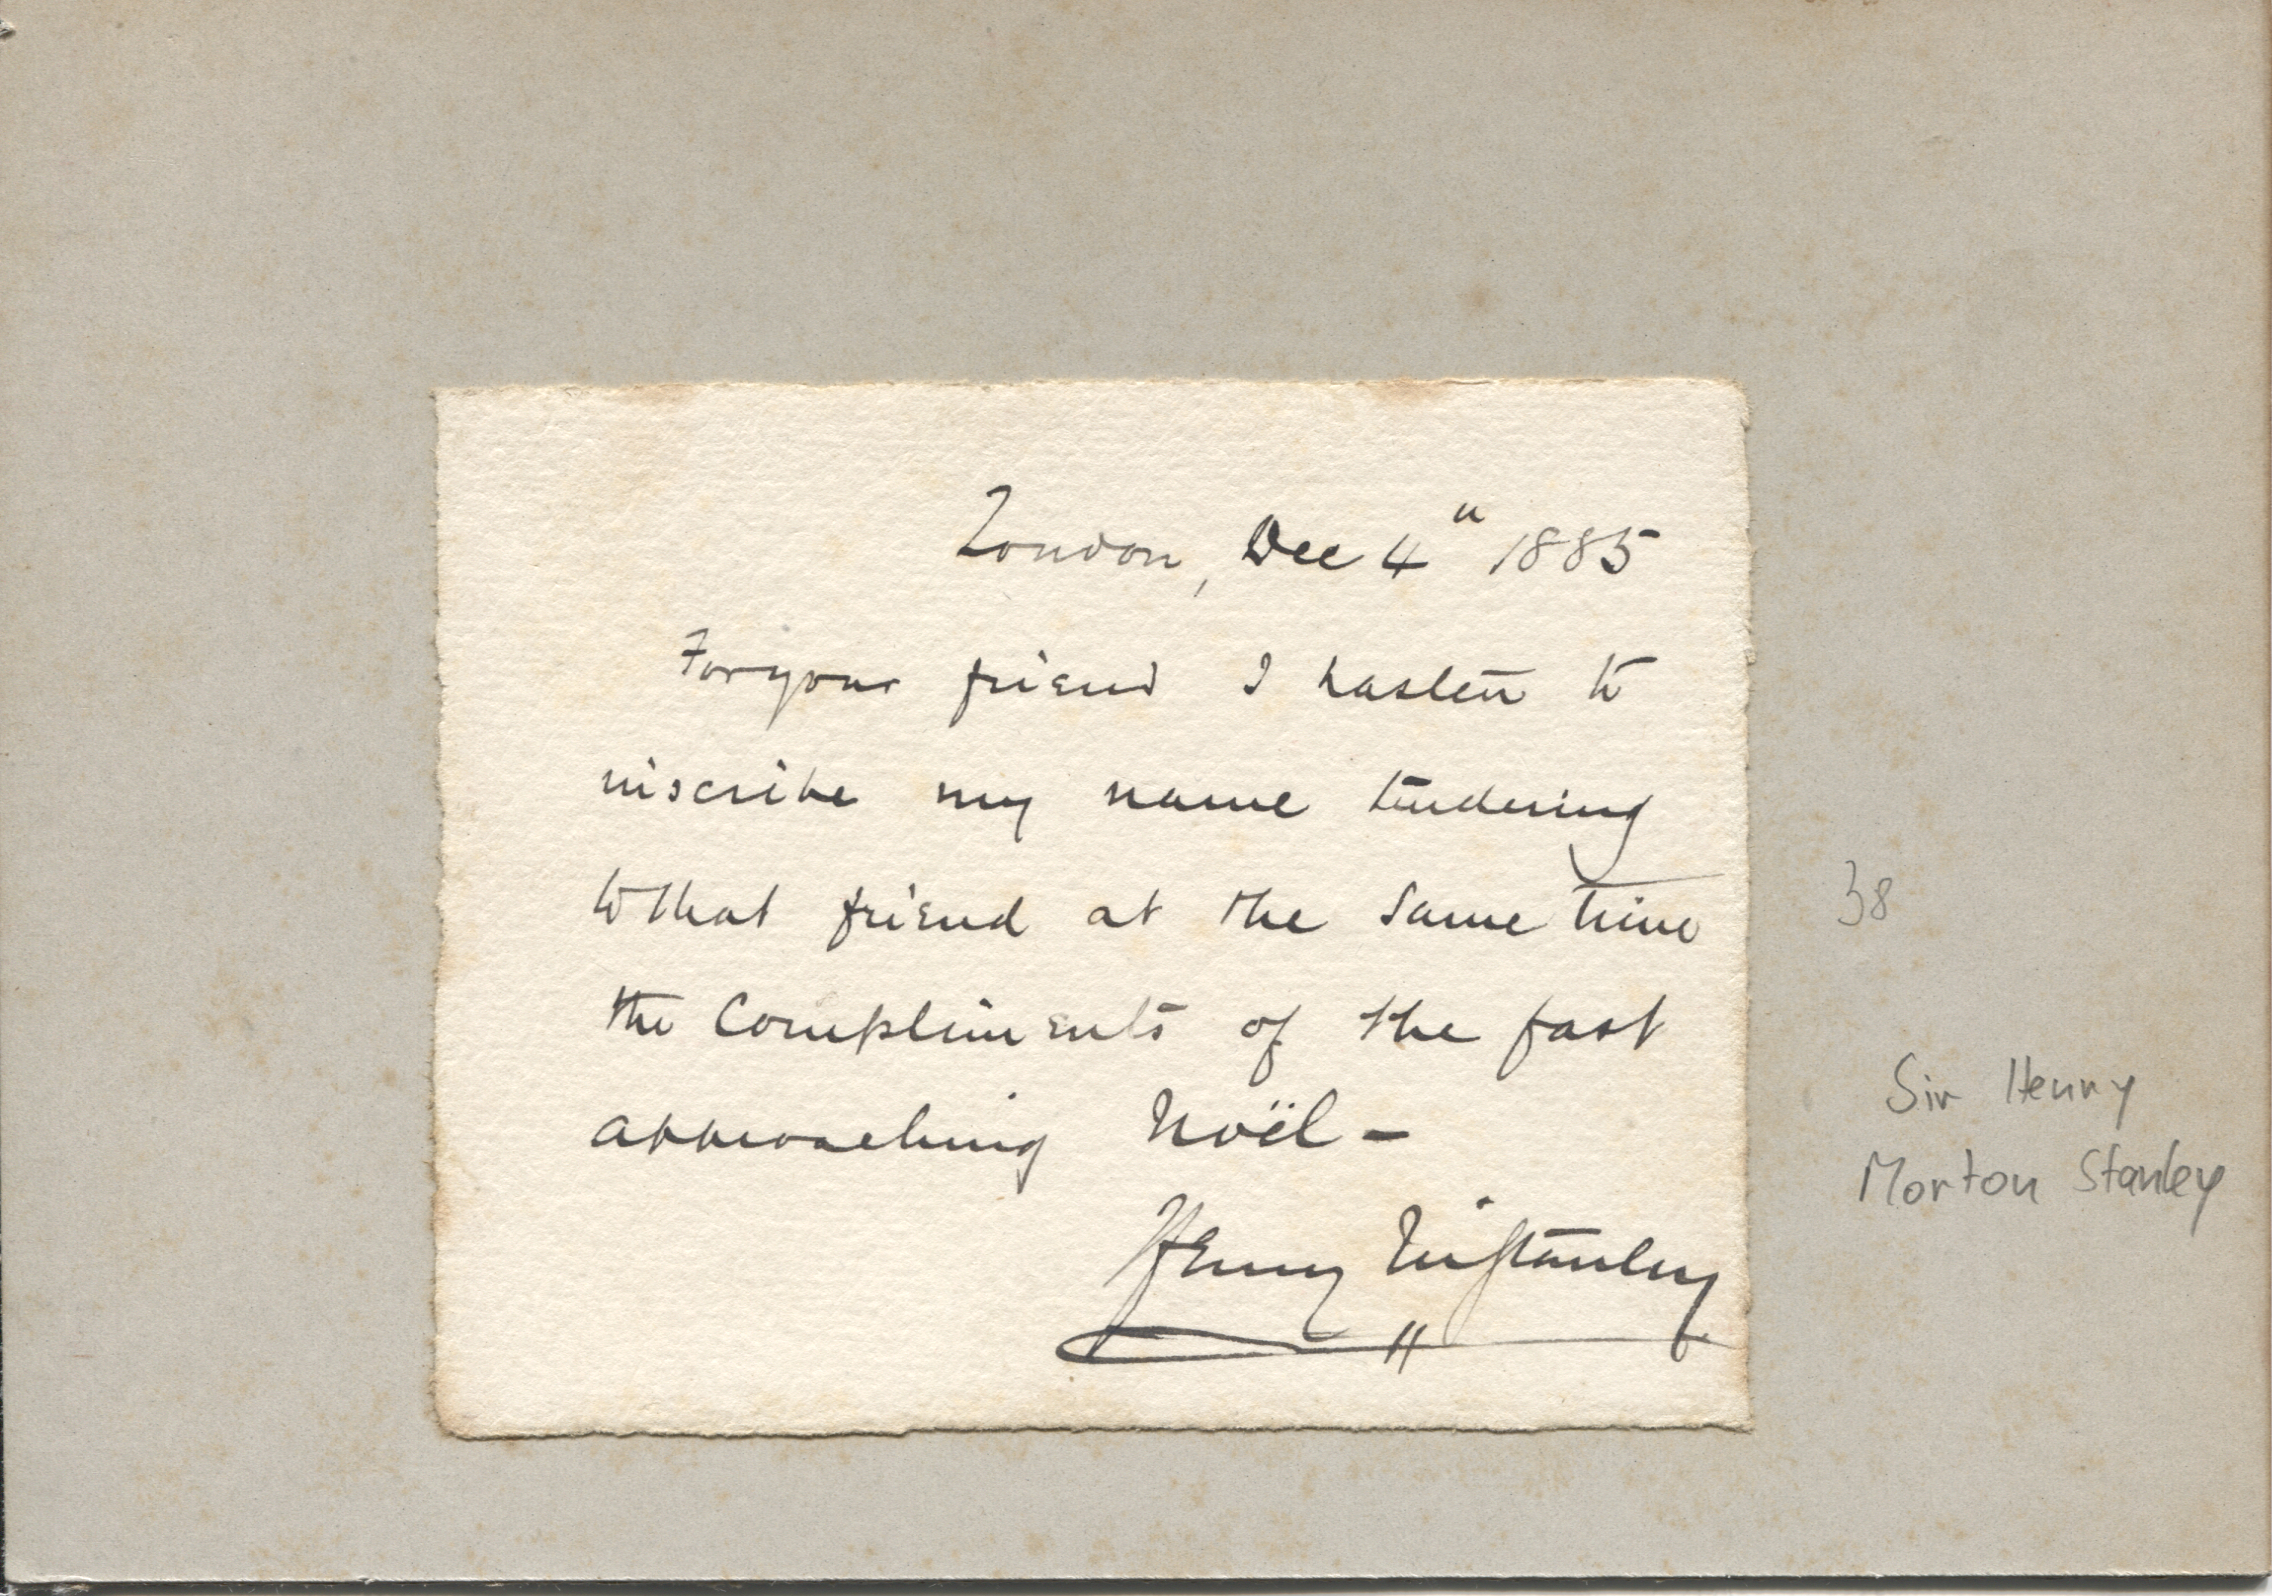 London, Dec 4" 1885
For your friend I hasten to
inscribe my name tendering
to that friend at the same time
the Compliments of the fast
approaching Noël –
Henry M Stanley
38
Sir Henry
Morton Stanley